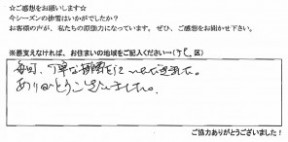 ☆ご感想をお願いします☆
今シーズンの排雪はいかがでしたか？
お客様の声が、私たちの原動力になっています。ぜひ、ご感想をお聞かせ下さい。
※差支えなければ、お住まいの地域をご記入ください→（ 区）
毎回、丁寧な排雪をして いただきました。
ありがとうございました。
ご協力ありがとうございました！